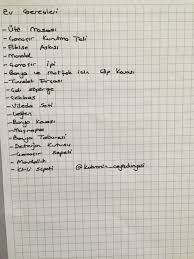 Ev Gereçleri
- Ütü Masası
- Çamaşır Kurutma Teli
- Elbise Askısı
- Mandal
- Çamaşır ipi
- Banyo ve Mutfak için Çöp Kovası
- Tuvalet Fırçası
- Çalı süpürge
- Vileda Seti
- Leğen
- Banyo Kovası
- Maşrapa
- Banyo Taburesi
- Deterjan Kutusu
- Çamaşır Sepeti
- Mandallık
- Kirli sepeti